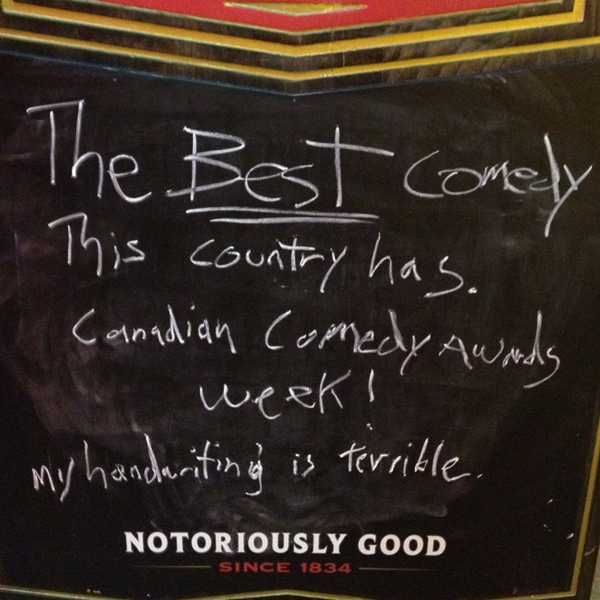 The Best Comedy
This country has.
Canadian Comedy Awards
week!
my handwriting is terrible.
NOTORIOUSLY GOOD
SINCE 1834